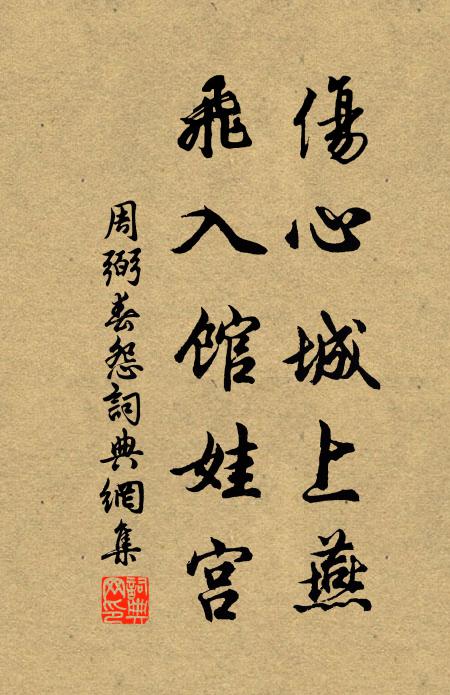 傷心城上燕
飛入館娃宮
周弼春怨詞典網集
詞典
网印